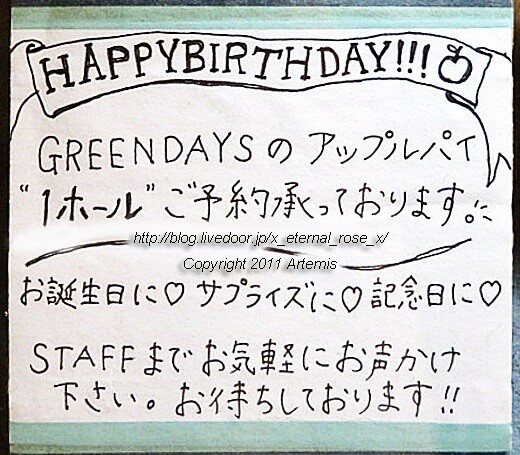 HAPPYBIRTHDAY!!!
GREENDAYSのアップルパイ
"1ホール"ご予約承っております。
http://blog.livedoor.jp/x_eternal_rose_x/
Copyright 2011 Artemis
お誕生日に♡ サプライズに♡ 記念日に♡
STAFFまでお気軽にお声かけ
下さい。お待ちしております!!